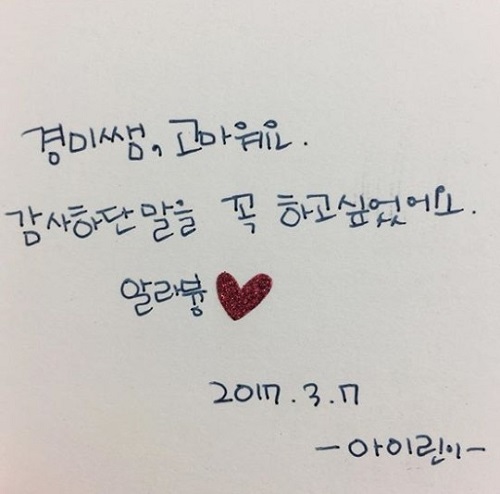 경미쌤, 고마워요.
감사하단 말을 꼭 하고싶었어요.
알라븅
2017.3.7
-아이린이-